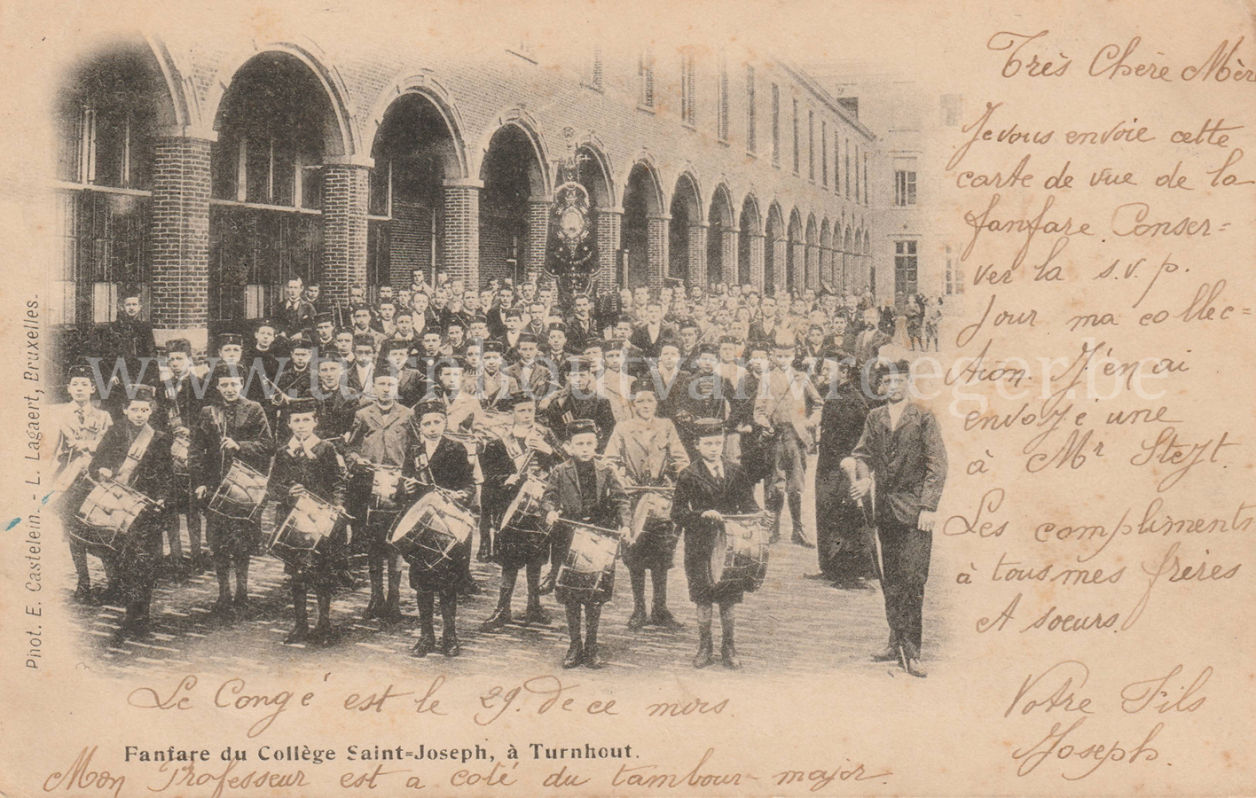 Très Chère Mèr
Je vous envoie cette
carte de vue de la
fanfare. Conser=
ver la s.v.p.
Jour ma collec=
tion J'en ai
envoyé une
à Mr Steyt.
Les compliments
à tous mes frères
et soeurs.
Votre Fils
Joseph.
Phot. E. Castelein. - L. Lagaert, Bruxelles.
www.turnhoutvanvroeger.be
Le Congé est le 29. de ce mois
Fanfare du Collège Saint=Joseph, à Turnhout.
Mon Professeur est a coté du tambour-major.